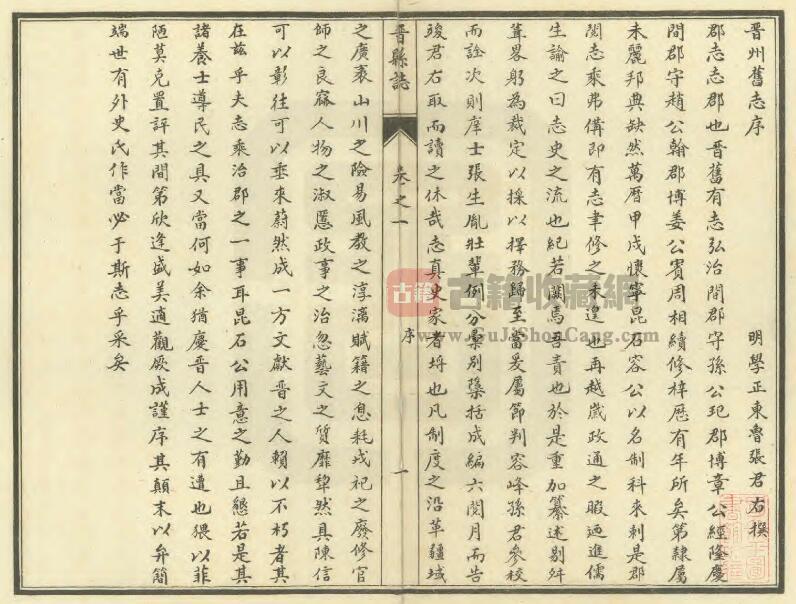 晋州舊志序
明學正東魯張君右撰
郡志志郡也晋舊有志弘治間郡守孫公玘郡博章公經隆慶
間郡守趙公翰郡博姜公賓周相續修梓歷有年所矣第隸屬
未麗邦典缺然萬曆甲戌懷寧昆石容公以名制科来刺是郡
閱志乘弗備即有志聿修之未遑也再越歲政通之暇廼進儒
生諭之曰志史之流也紀若闕焉吾責也於是重加纂述剔舛
葺畧躬為裁定以採以擇務歸至當爰屬節判容峰孫君參校
而詮次則庠士張生胤壯輩例分彙别櫽括成編六閱月而告
竣君右取而讀之休哉志真史家者埒也凡制度之沿革疆域
晋縣誌
卷之一
序
一
之廣袤山川之險易風教之淳漓賦籍之息耗戍祀之廢修官
師之良窳人物之淑慝政事之治忽藝文之質靡犂然具陳信
可以彰往可以垂來蔚然成一方文獻晋之人賴以不朽者其
在兹乎夫志乘治郡之一事耳昆石公用意之勤且懇若是其
諸養士導民之具又當何如余猶慶晋人士之有遭也猥以菲
陋莫克置評其間第欣逢盛美適觀厥成謹序其顛末以弁簡
端世有外史氏作當必于斯志乎采矣
古籍
古籍收藏網
www.GuJiShouCang.com